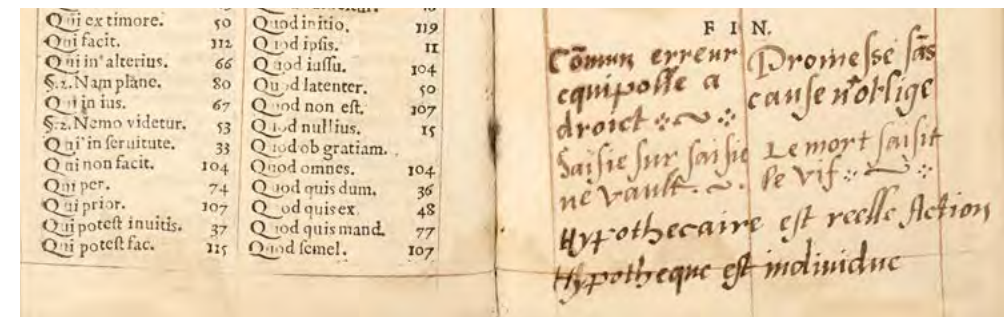 Qui ex timore. 50
Qui facit. 112
Qui in' alterius. 66
§.2. Nam planè. 80
Qui in ius. 67
§.2. Nemo videtur. 53
Qui in seruitute. 33
Qui non facit. 104
Qui per. 74
Qui prior. 107
Qui potest inuitis. 37
Qui potest fac. 115
Quod initio. 119
Quod ipsis. 11
Quod iussu. 104
Quod latenter. 50
Quod non est. 107
Quod nullius. 15
Quod ob gratiam.
Quod omnes. 104
Quod quis dum. 36
Quod quis ex 48
Quod quis mand. 77
Quod semel. 107
FIN.
Cōmun erreur
equipolle a
droict
Promesse sās
cause n'oblige
Saisie sur saisie
ne vault.
Le mort saisit
le vif
Hypothecaire est reelle Action
Hypotheque est indiuidue